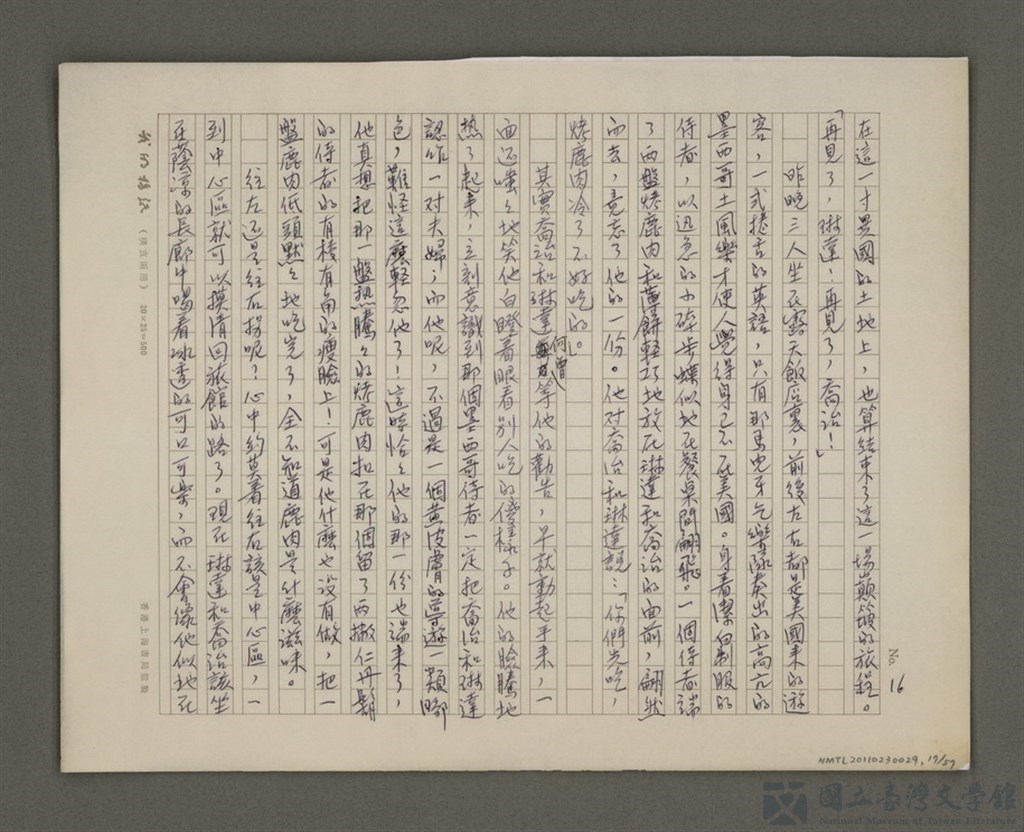 No. 16
在這一寸異國的土地上，也算結束了這一場顛簸的旅程。
「再見了，琳達！再見了，喬治！」
昨晚三人坐在露天飯店裏，前後左右都是美國來的遊
客，一式捲舌的英語，只有那馬兒牙乞樂隊奏出的高亢的
墨西哥土風樂才使人覺得身已不在美國。身着潔白制服的
侍者，以迅急的小碎步蝶似地在餐桌間翩飛。一個侍者端
了兩盤烤鹿肉和薄餅輕巧地放在琳達和喬治的面前，翩然
而去，竟忘了他的一份。他对喬治和琳達說：「你們先吃，
烤鹿肉冷了不好吃的。」
其實喬治和琳達何曾等他的勸告，早就動起手來，一
面还嗤々地笑他白瞪着眼看別人吃的傻樣子。他的臉騰地
熱了起來，立刻意識到那個墨西哥侍者一定把喬治和琳達
認作一对夫婦；而他呢，不過是一個黃皮膚的導遊一類腳
色，難怪這麼輕忽他了！這時恰々他的那一份也端來了，
他真想把那一盤熱騰々的烤鹿肉扣在那個留了兩撇仁丹鬍
的侍者的有棱有角的瘦臉上！可是他什麼也没有做，把一
盤鹿肉低頭默々地吃完了，全不知道鹿肉是什麼滋味。
往左还是往右拐呢？心中約莫着往右該是中心區，一
到中心區就可以摸清回旅館的路了。現在琳達和喬治該坐
在蔭凉的長廊中喝着冰透的可口可樂，而不會像他似地在
我的稿紙（橫直兩用）20×25=500
香港上海書局監製
NMTL20110230029, 17/57
國立臺灣文學館
National Museum of Taiwan Literature